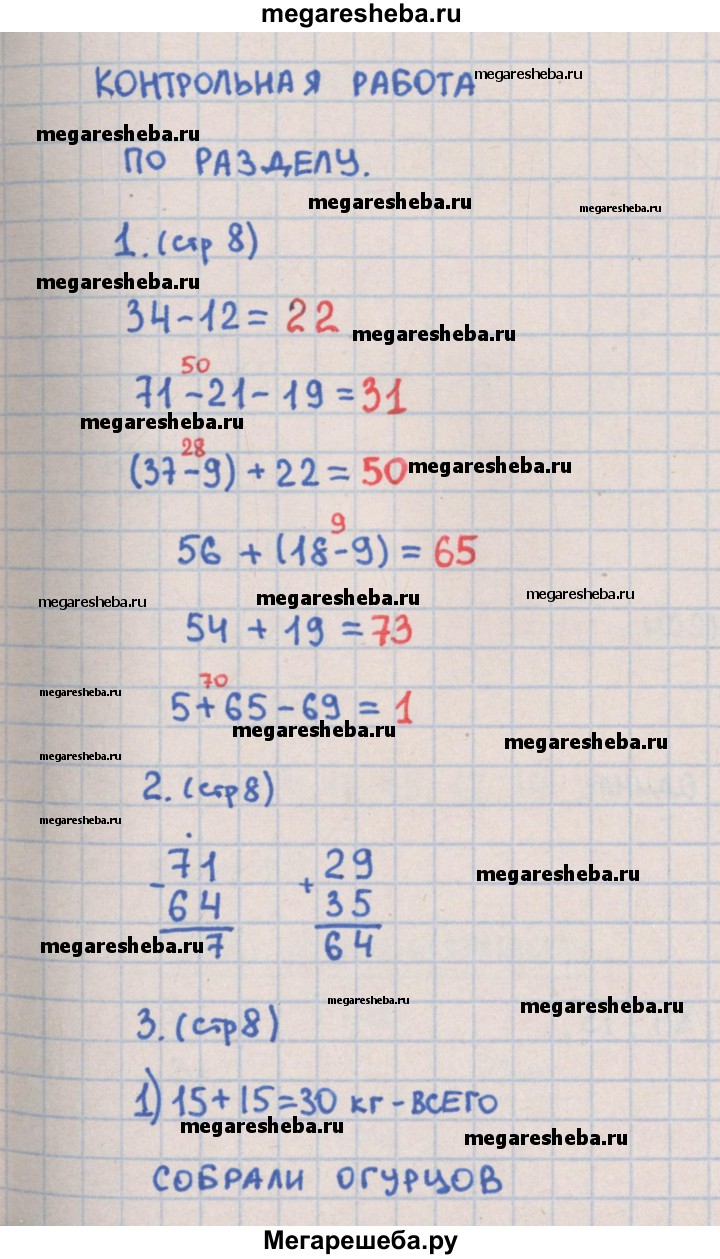 megaresheba.ru
КОНТРОЛЬНАЯ РАБОТА megaresheba.ru
megaresheba.ru
ПО РАЗДЕЛУ.
megaresheba.ru megaresheba.ru
1. (стр 8)
megaresheba.ru
34-12= 22
megaresheba.ru
50
71-21-19=31
megaresheba.ru
28
(37-9)+22=50 megaresheba.ru
9
56+(18-9)=65
megaresheba.ru megaresheba.ru megaresheba.ru
54+19=73
70
megaresheba.ru
5+65-69=1
megaresheba.ru megaresheba.ru
megaresheba.ru
2. (стр 8)
megaresheba.ru
- 71 + 29
megaresheba.ru
64 35
7 64
megaresheba.ru
megaresheba.ru megaresheba.ru
3. (стр 8)
1) 15+15=30 кг-ВСЕГО
megaresheba.ru megaresheba.ru
СОБРАЛИ ОГУРЦОВ
Мегарешеба.ру